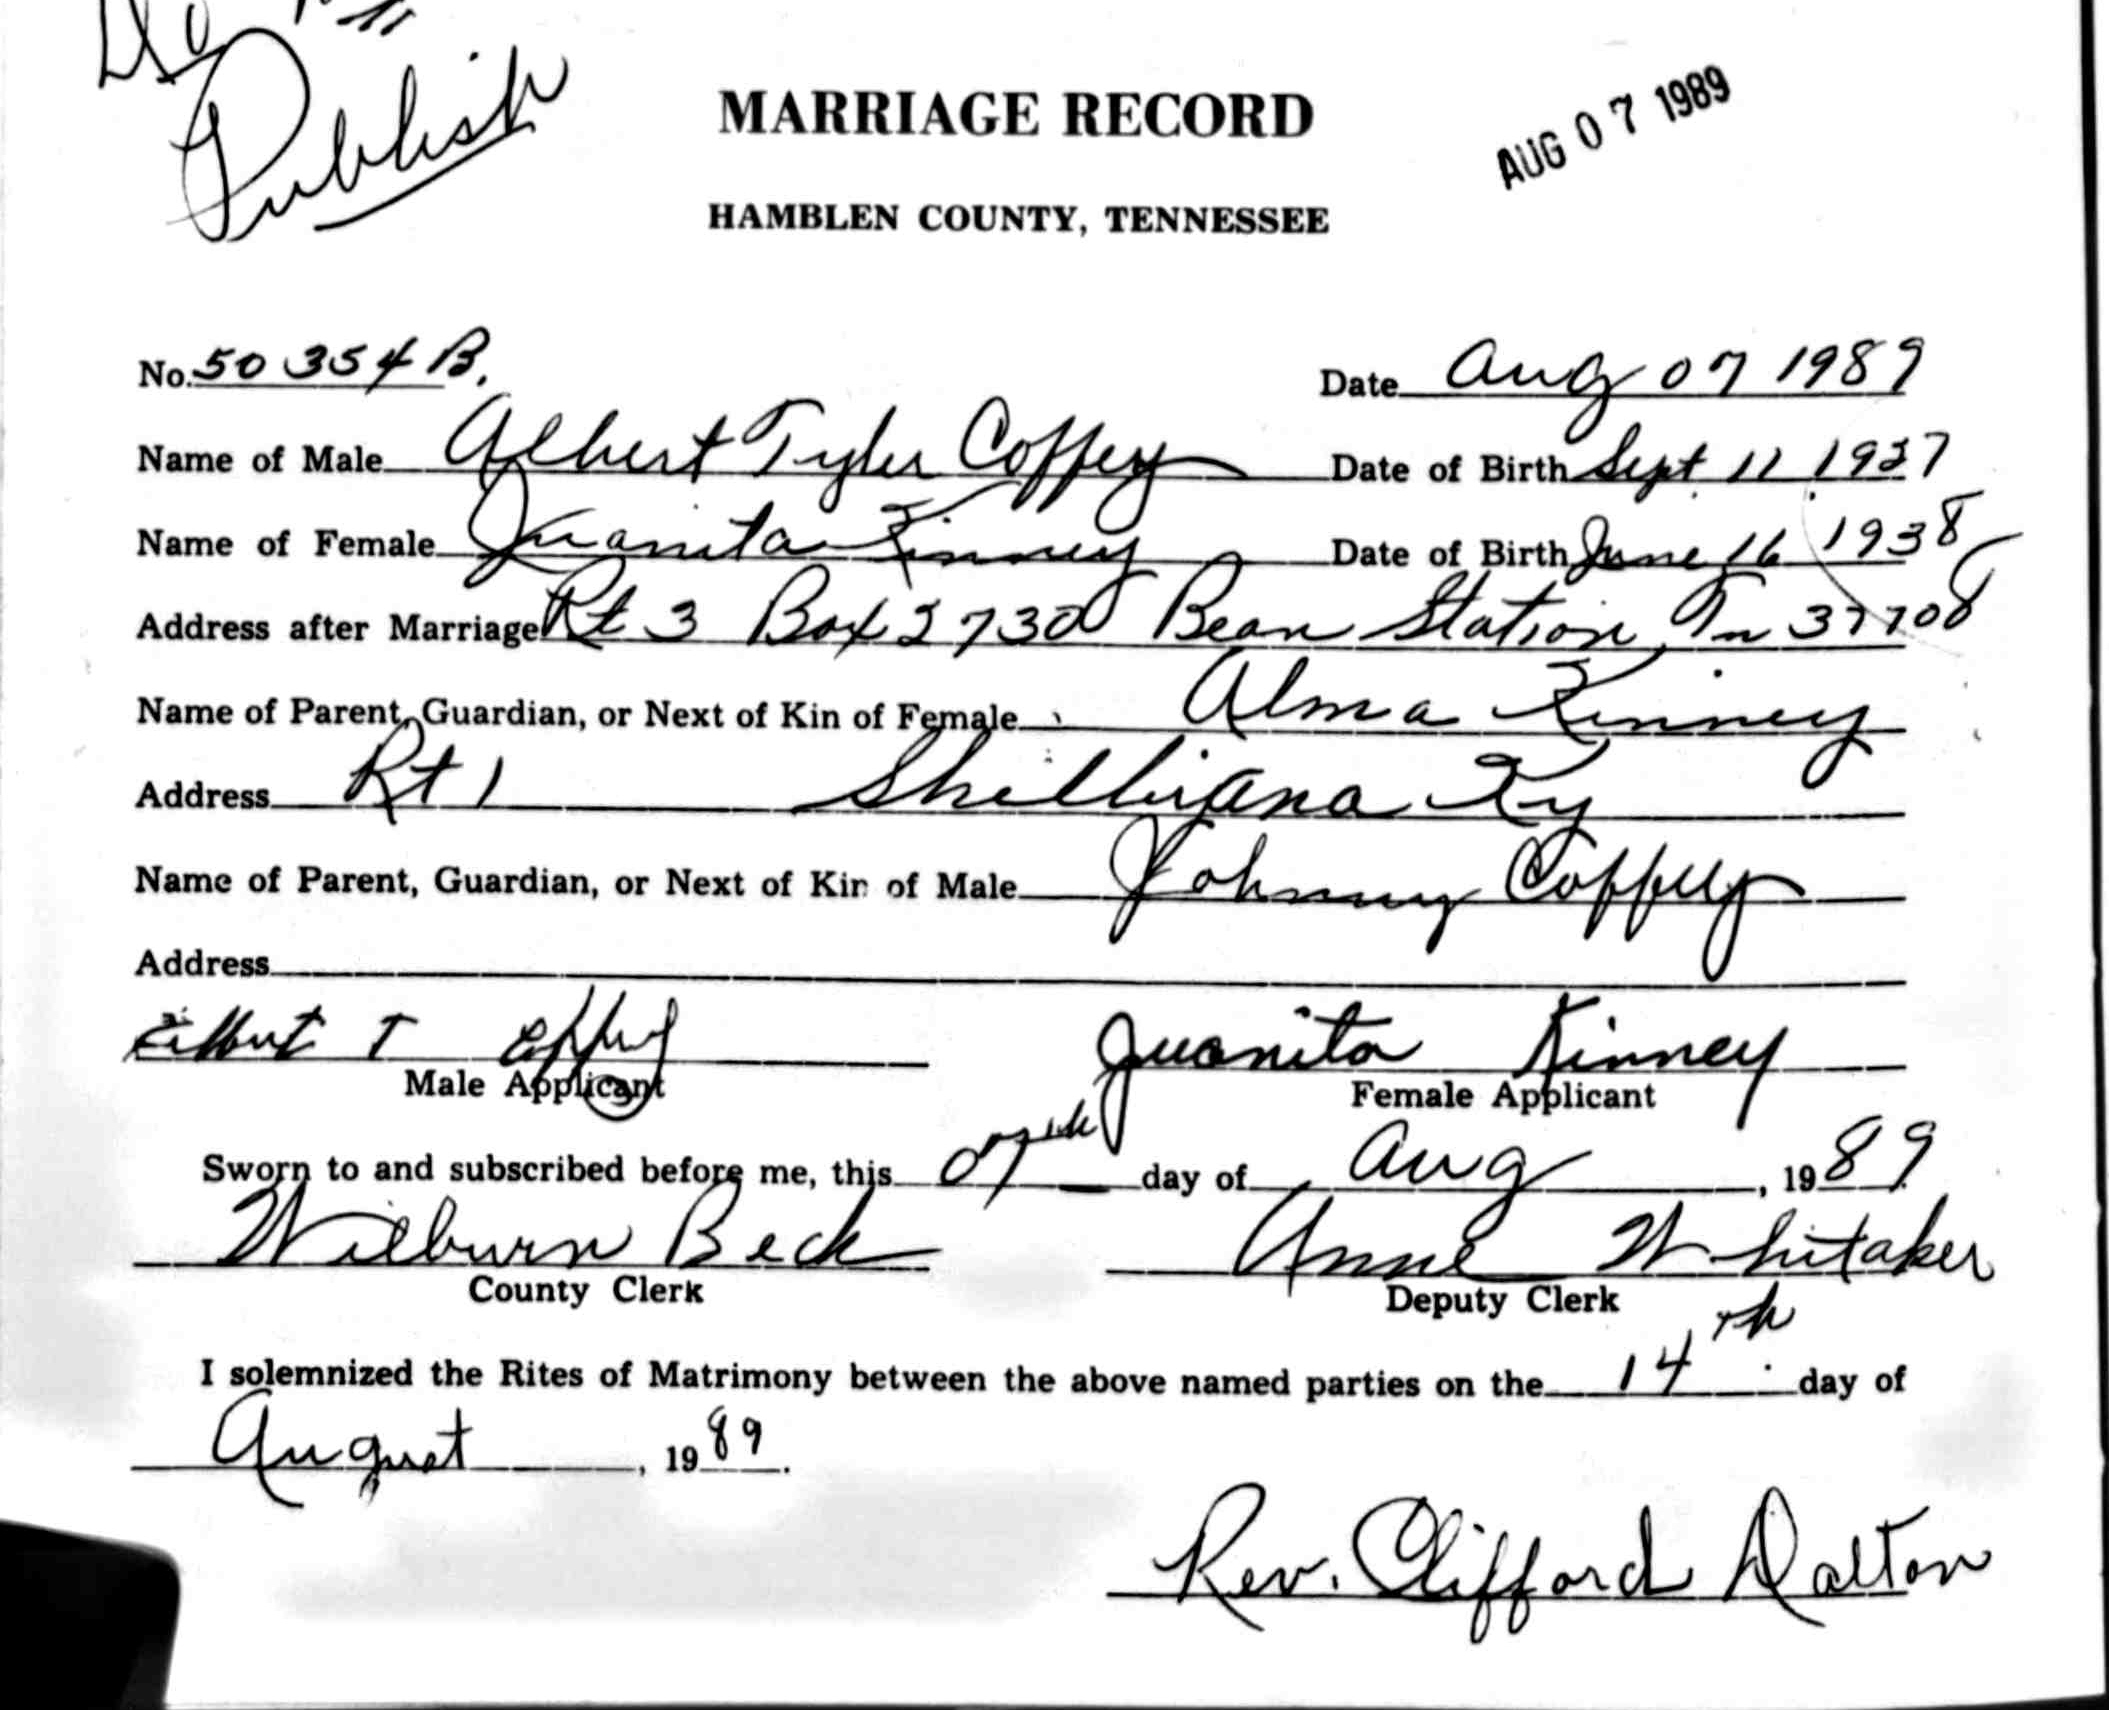 Do Not
Publish
MARRIAGE RECORD
AUG 07 1989
HAMBLEN COUNTY, TENNESSEE
No. 50354 B. Date Aug 07 1989
Name of Male Albert Tyler Coffey Date of Birth Sept 11 1937
Name of Female Juanita Kinney Date of Birth June 16 1938
Address after Marriage Rt 3 Box 2730 Bean Station, Tn 37708
Name of Parent, Guardian, or Next of Kin of Female Alma Kinney
Address Rt 1 Shelbiana Ky
Name of Parent, Guardian, or Next of Kin of Male Johnny Coffey
Address
T Coffey Juanita Kinney
Male Applicant Female Applicant
Sworn to and subscribed before me, this 07th day of Aug, 1989
Wilburn Beck Anne Whitaker
County Clerk Deputy Clerk
I solemnized the Rites of Matrimony between the above named parties on the 14th day of
August, 1989.
Rev. Clifford Dalton